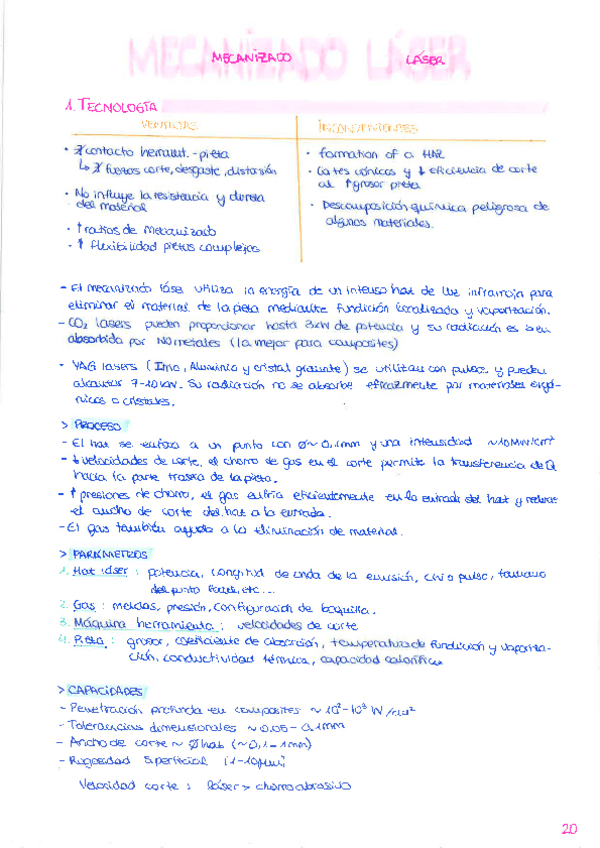 MECANIZADO LÁSER
1. TECNOLOGÍA
VENTAJAS
INCONVENIENTES
• ∄ contacto herramt. - pieza
↳ ∄ fuerzas corte, desgaste, distorsión
• No influye la resistencia y dureza
del material
• ↑ ratios de mecanizado
• ↑ flexibilidad piezas complejas
• formation of a HAZ
• Cortes cónicos y ↓ eficiencia de corte
al ↑ grosor pieza
• Descomposición química peligrosa de
algunos materiales.
- El mecanizado láser utiliza la energía de un intenso haz de luz infrarroja para
eliminar el material de la pieza mediante fundición localizada y vaporización.
- CO2 lasers pueden proporcionar hasta 3kW de potencia y su radiación es bien
absorbida por NO metales (la mejor para composites)
- YAG lasers (Itrio, Aluminio y cristal granate) se utilizan con pulsos y pueden
alcanzar 7-10 kW. Su radiación no se absorbe eficazmente por materiales orgá-
nicos o cristales.
> PROCESO
- El haz se enfoca a un punto con ø ~ 0,1mm y una intensidad ~10MW/cm²
- ↓ velocidades de corte, el chorro de gas en el corte permite la transferencia de Q
hacia la parte trasera de la pieza.
- ↑ presiones de chorro, el gas enfría eficientemente en la entrada del haz y
el ancho de corte del haz a la entrada.
- El gas también ayuda a la eliminación de material.
> PARÁMETROS
1. Haz láser : potencia, longitud de onda de la emisión, cw o pulso, tamaño
del punto focal, etc...
2. Gas : mezclas, presión, configuración de boquilla.
3. Máquina herramienta : velocidades de corte
4. Pieza : grosor, coeficiente de absorción, temperatura de fundición y vaporiza-
ción, conductividad térmica, capacidad calorífica
> CAPACIDADES
- Penetración profunda en composites ~ 10²-10³ W/cm²
- Tolerancias dimensionales ~ 0.05 - 0,1mm
- Ancho de corte ~ ø haz (~0,1 - 1mm)
- Rugosidad superficial (1-10μm)
Velocidad corte : láser > chorro abrasivo
20